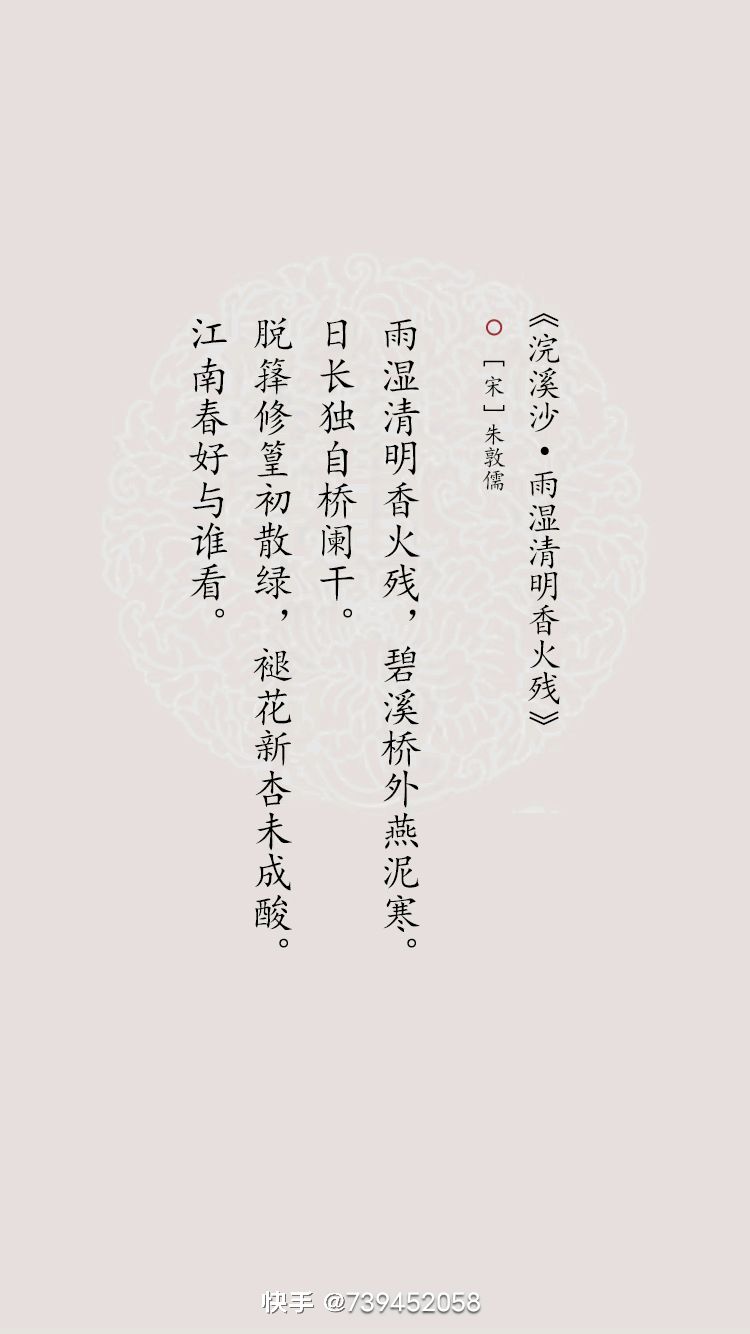 《浣溪沙•雨湿清明香火残》
[宋]朱敦儒
雨湿清明香火残，碧溪桥外燕泥寒。
日长独自桥阑干。
脱箨修篁初散绿，褪花新杏未成酸。
江南春好与谁看。
快手 @739452058